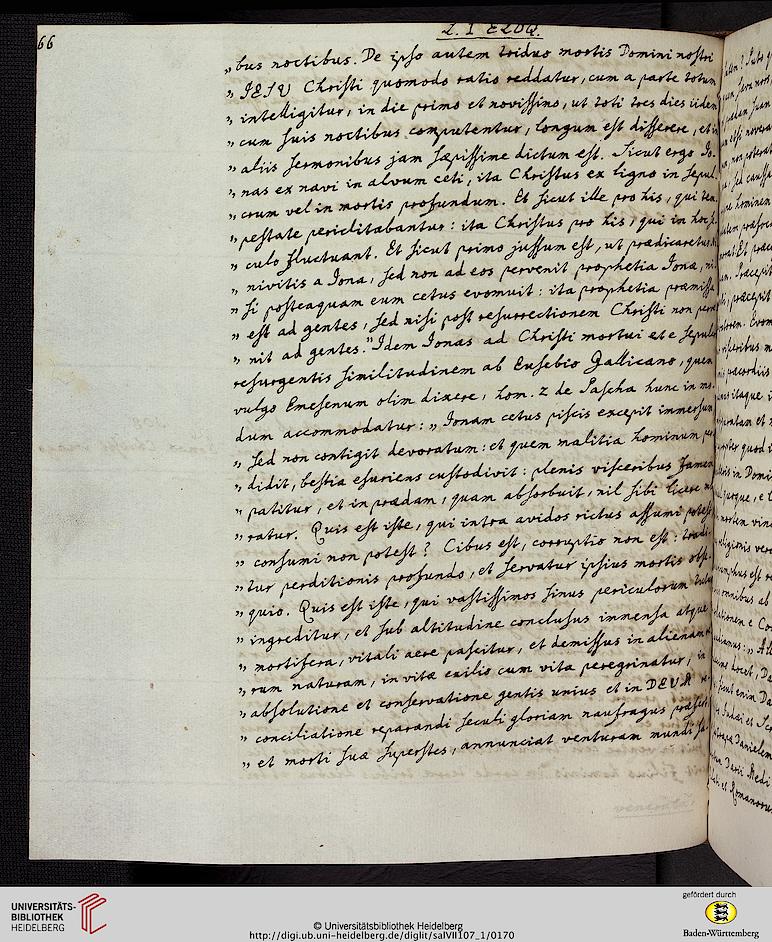 66
L. I ELOQ.
„ bus noctibus. De ipso autem triduo mortis Domini nostri
„ IESV Christi quomodo ratio reddatur, cum a parte totum
„ intelligitur, in die primo et novissimo, ut toti tres dies iidem
„ cum suis noctibus computentur, longum est disserere, et in
„ aliis sermonibus jam sæpissime dictum est. Sicut ergo Jo-
„ nas ex navi in alvum ceti, ita Christus ex ligno in sepul-
„ crum vel in mortis profundum. Et sicut ille pro his, qui tem-
„ pestate periclitabantur: ita Christus pro his, qui in hoc s
„ culo fluctuant. Et sicut primo jussum est, ut prædicaretur
„ nivitis a Iona, sed non ad eos pervenit prophetia Ionæ, ni-
„ si posteaquam eum cetus evomuit: ita prophetia præmissa
„ est ad gentes, sed nisi post resurrectionem Christi non perve
„ nit ad gentes." Idem Ionas ad Christi mortui et e sepulc
resurgentis similitudinem ab Eusebio Gallicano, quem
vulgo Emesenum olim dixere, hom. 2 de Pascha hunc in mo-
dum accommodatur: „ Ionam cetus piscis excepit immersum
„ sed non contigit devoratum: et quem malitia hominum per
„ didit, bestia esuriens custodivit: plenis visceribus famem
„ patitur, et in prædam, quam absorbuit, nil sibi licere
„ ratur. Quis est iste, qui intra avidos rictus assumi potest
„ consumi non potest? Cibus est, corruptio non est: tradi-
„ tur perditionis profundo, et servatur ipsius mortis obse-
„ quio. Quis est iste, qui vastissimos sinus periculorum
„ ingreditur, et sub altitudine conclusus inmensa atque
„ mortifera, vitali aere pascitur, et demissus in alienam
„ rum naturam, in vitæ exilio cum vita peregrinatur, in
„ absolutione et conservatione gentis unius et in DEUM re-
„ conciliatione reparandi seculi gloriam naufragus
„ et morti suæ superstes, annunciat venturam mundi sa
UNIVERSITÄTS-
BIBLIOTHEK
HEIDELBERG
© Universitätsbibliothek Heidelberg
http://digi.ub.uni-heidelberg.de/diglit/salVII107_1/0170
gefördert durch
Baden-Württemberg